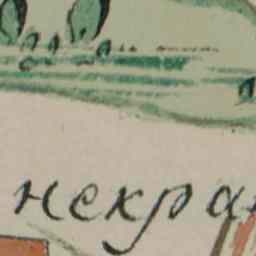 некра